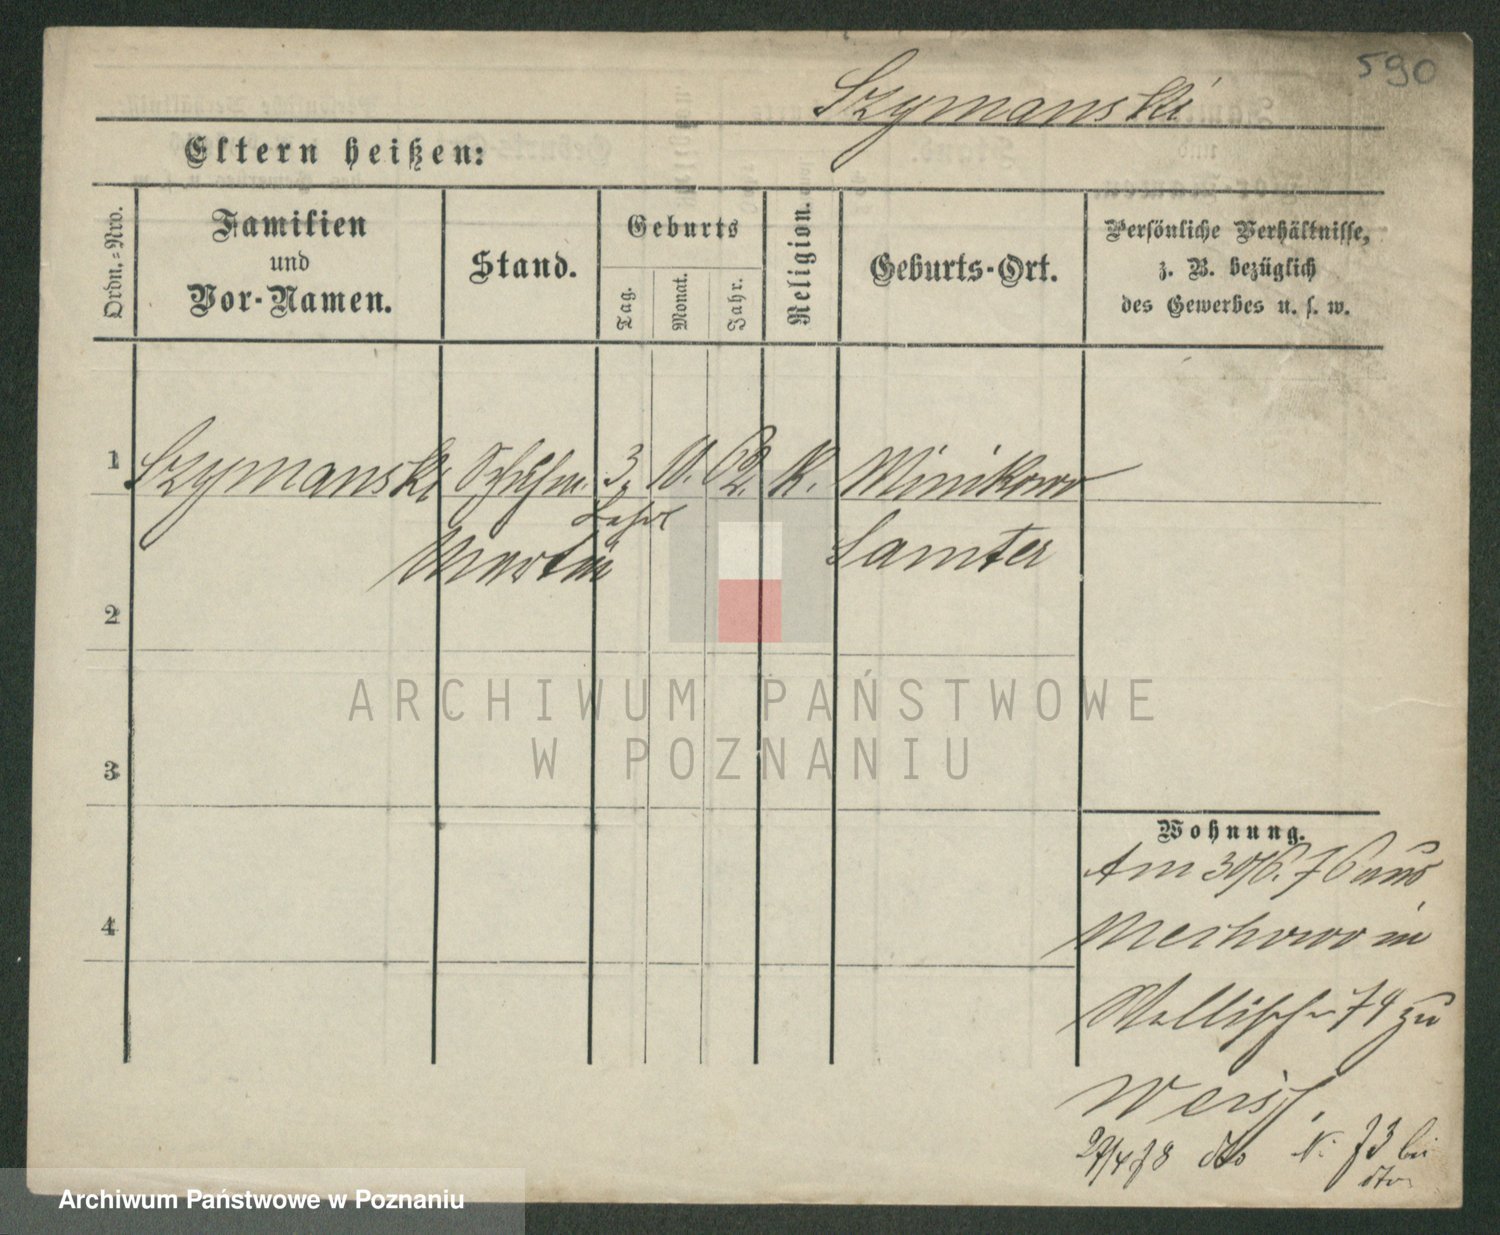 590
Szymanski
Eltern heißen:
Ordn.-Nro.
Familien
und
Vor-Namen.
Stand.
Geburts
Tag.
Monat.
Jahr.
Religion.
Geburts-Ort.
Persönliche Verhältnisse,
z. B. bezüglich
des Gewerbes u. s. w.
1 Szymanski Schuhm. 3. 11. 62. K. Minikowo
Lehrl
Martin Samter
2
3
4
Wohnung.
Am 30/6. 76 aus
Mechowo in
Wallischei 74 zu
Weiss.
29/4 78 dto N: 73 bei
dto
ARCHIWUM PAŃSTWOWE
W POZNANIU
Archiwum Państwowe w Poznaniu